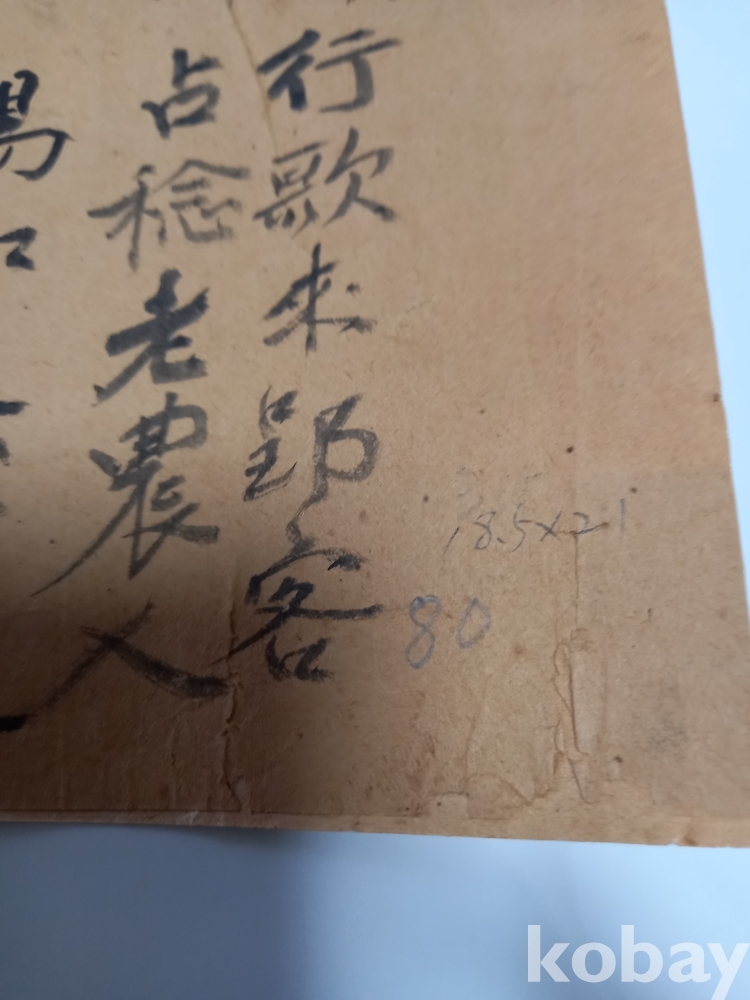 行歌來郢客
占稔老農人
18.5×21
80
kobay